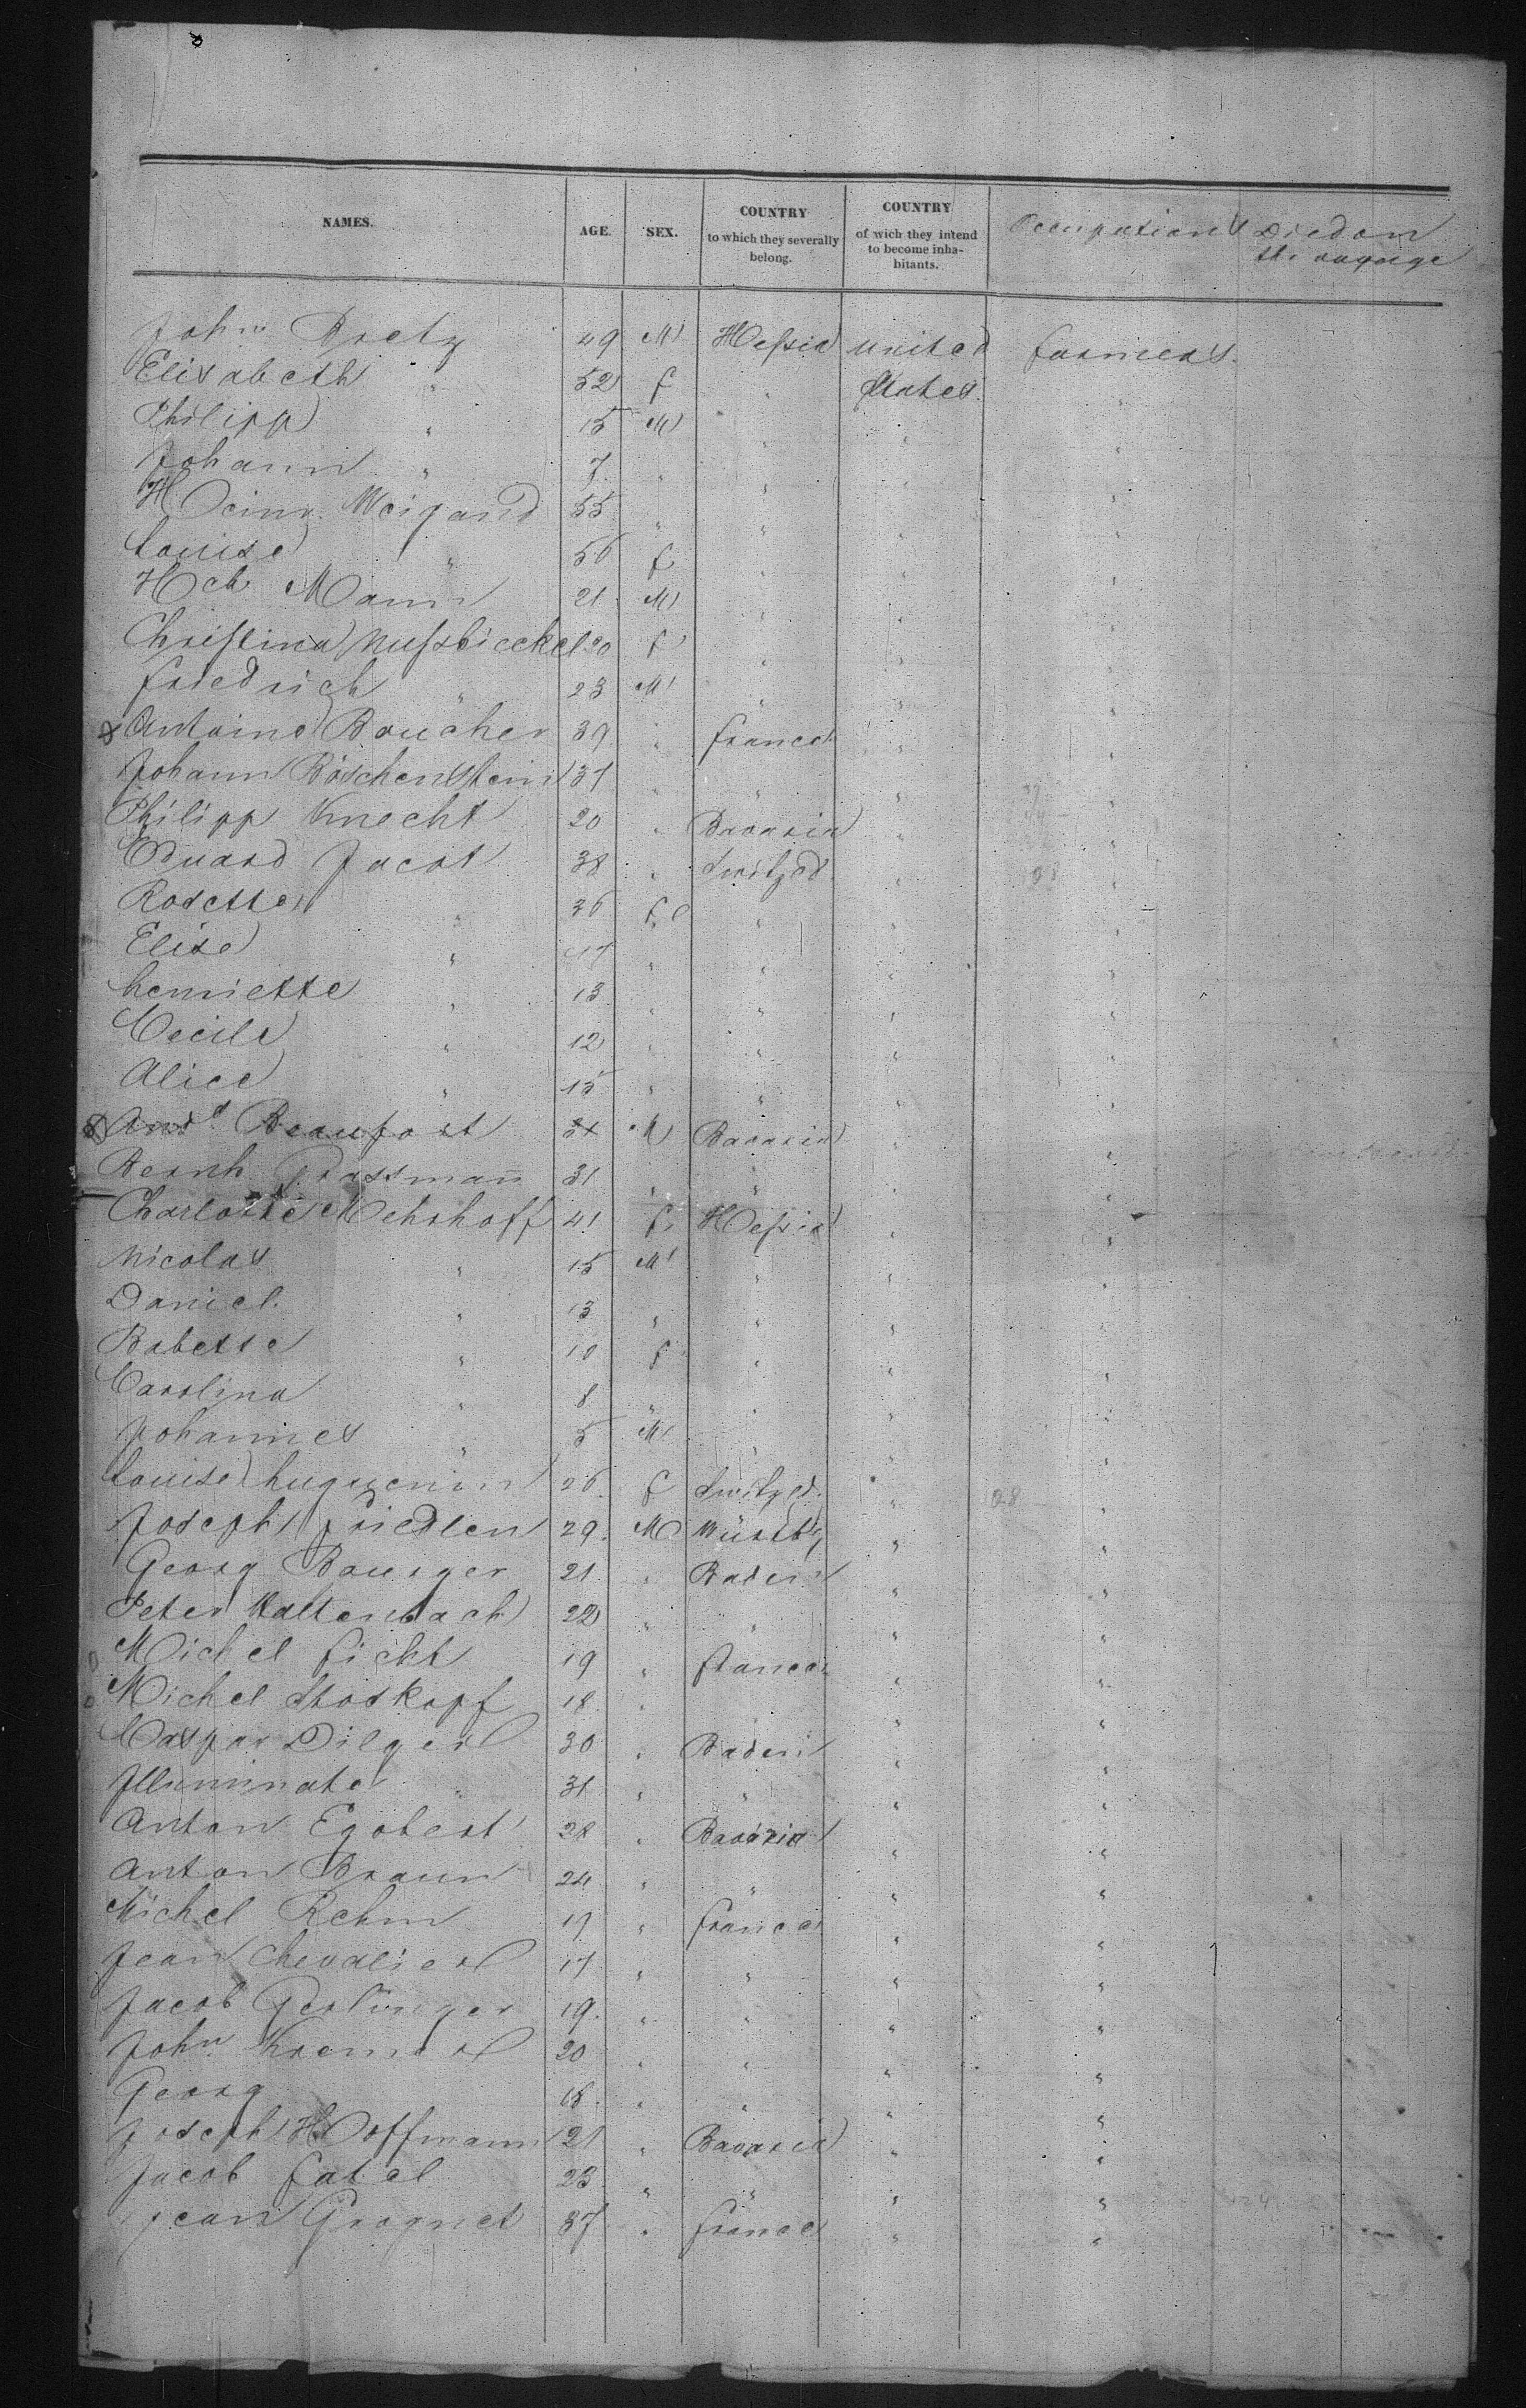 NAMES. AGE. SEX. COUNTRY to which they severally belong. COUNTRY of wich they intend to become inhabitants. Occupations Died on the voyage
John Bretz 49 M Hessia united farmers.
Elisabeth " 52 f " States "
Philipp " 15 M " " "
Johann " 7 " " " "
Heinr. Weigand 55 " " " "
Louise " 56 f " " "
Hch Mann 21 M " " "
Christina Nussbickel 20 f " " "
friedrich " 23 M " " "
Antoine Boucher 39 " france " "
Johann Böschenstein 37 " " " "
Philipp Knecht 20 " Bavaria " "
Eduard Jacot 38 " Switzd " "
Rosette " 36 f " " "
Elise " 17 " " " "
henriette " 13 " " " "
Cecile " 12 " " " "
Alice " 15 " " " "
And Beaufort M Bavaria " "
Bernh Grassmann 31 " " " "
Charlotte Mehrhoff 41 f. Hessia " "
Nicolas " 15 M " " "
Daniel. " 13 " " " "
Babette " 10 f " " "
Carolina " 8 " " " "
Johannes " 5 M " " "
Louise huguenin 26 f Switzd. " "
Joseph friedlen 29. M Württbg " "
Georg Baurger 21 " Baden " "
Peter Kaltenbach 22 " " " "
Michel fickt 19 " france " "
Michel Stoskopf 18 " " " "
Caspar Dilger 30 " Baden " "
Illuminate " 31 " " " "
Anton Egobert 28 " Bavaria " "
Anton Braun 24 " " " "
Michel Rehm 19 " france " "
Jean Chevalier 17 " " " "
Jacob Gerlinger 19. " " " "
John Kremer 20 " " " "
Georg 18. " " " "
Joseph Hoffmann 21 " Bavaria " "
Jacob fatel 23 " " " "
Jean Grognet 37 " france " "